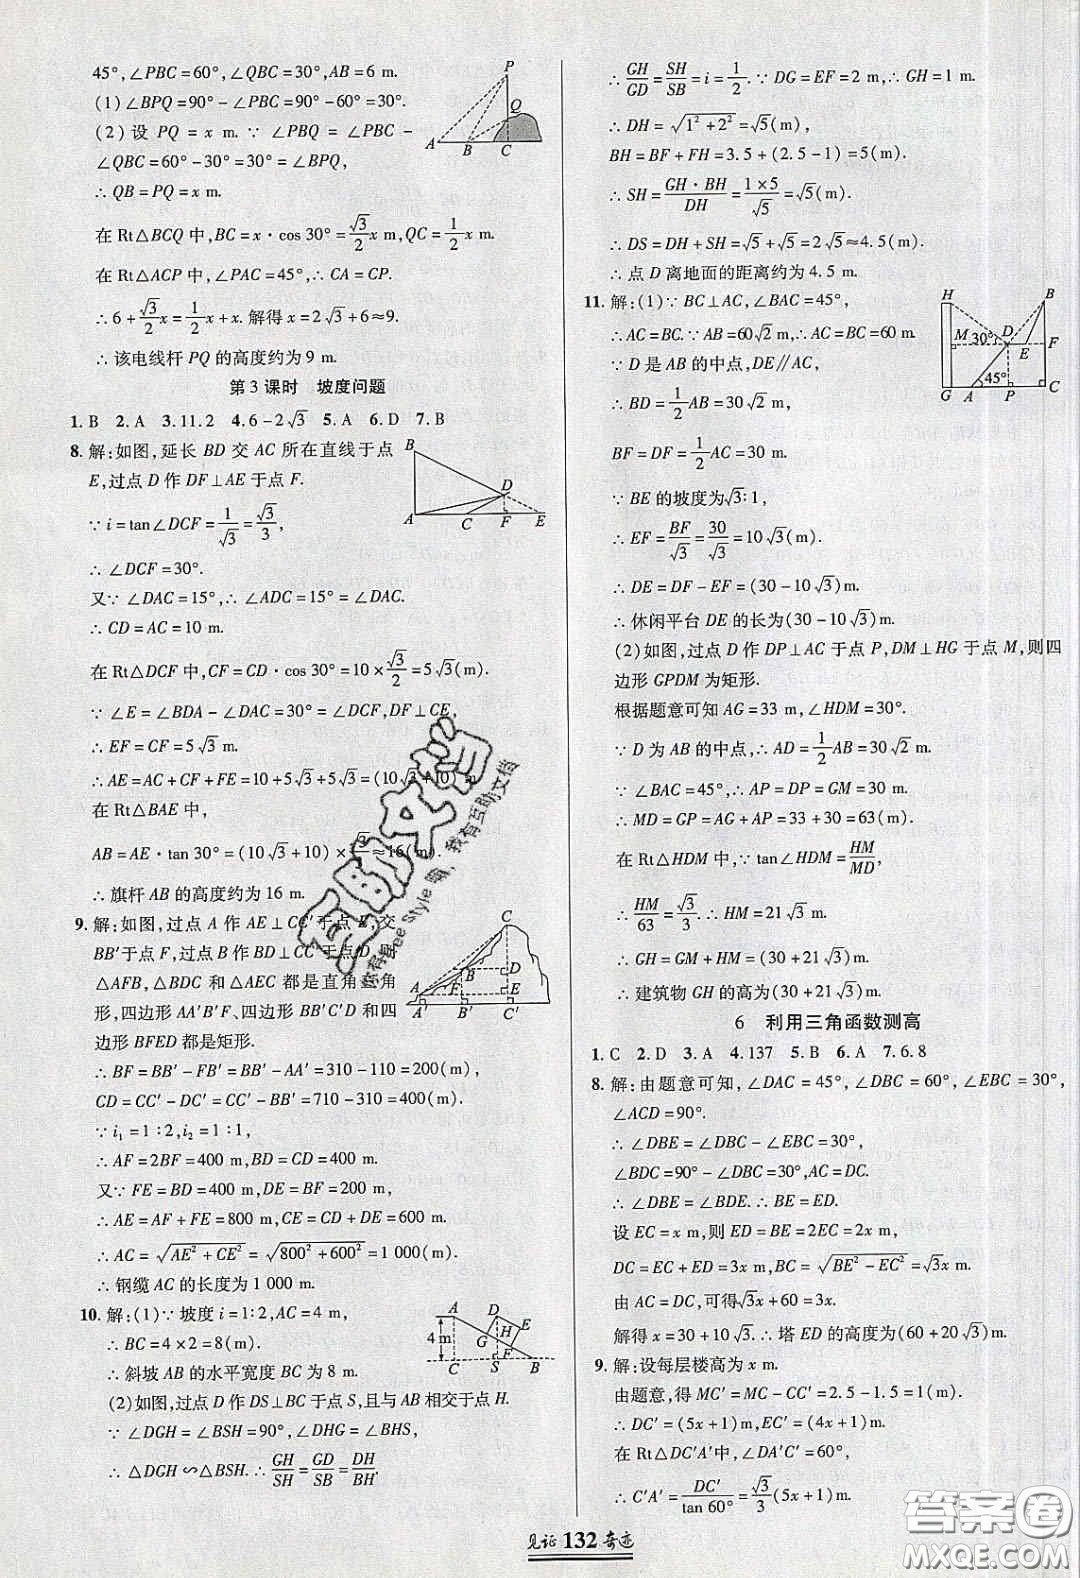 45°,∠PBC=60°,∠QBC=30°,AB=6 m.
(1)∠BPQ=90°-∠PBC=90°-60°=30°.
(2)设 PQ=x m.∵∠PBQ=∠PBC-
∠QBC=60°-30°=30°=∠BPQ,
∴QB=PQ=x m.
在 Rt△BCQ 中,BC=x·cos 30°=√3/2 x m,QC=1/2 x m.
在 Rt△ACP 中,∠PAC=45°,∴CA=CP.
∴6+√3/2 x=1/2 x+x. 解得 x=2√3+6≈9.
∴该电线杆 PQ 的高度约为 9 m.
P
Q
A B C
第 3 课时 坡度问题
1. B 2. A 3. 11.2 4. 6-2√3 5. A 6. D 7. B
8. 解:如图,延长 BD 交 AC 所在直线于点
E,过点 D 作 DF⊥AE 于点 F.
∵i=tan∠DCF=1/√3=√3/3,
∴∠DCF=30°.
又∵∠DAC=15°,∴∠ADC=15°=∠DAC.
∴CD=AC=10 m.
在 Rt△DCF 中,CF=CD·cos 30°=10×√3/2=5√3(m).
∵∠E=∠BDA-∠DAC=30°=∠DCF,DF⊥CE,
∴EF=CF=5√3 m.
∴AE=AC+CF+FE=10+5√3+5√3=(10√3+10) m.
在 Rt△BAE 中,
AB=AE·tan 30°=(10√3+10)×√3/3≈16(m).
∴旗杆 AB 的高度约为 16 m.
B
D
A C F E
9. 解:如图,过点 A 作 AE⊥CC′于点 E,交
BB′于点 F,过点 B 作 BD⊥CC′于点 D,则
△AFB,△BDC 和△AEC 都是直角三角
形,四边形 AA′B′F、四边形 BB′C′D 和四
边形 BFED 都是矩形.
∴BF=BB′-FB′=BB′-AA′=310-110=200(m),
CD=CC′-DC′=CC′-BB′=710-310=400(m).
∵i₁=1∶2,i₂=1∶1,
∴AF=2BF=400 m,BD=CD=400 m.
又∵FE=BD=400 m,DE=BF=200 m,
∴AE=AF+FE=800 m,CE=CD+DE=600 m.
∴AC=√(AE²+CE²)=√(800²+600²)=1 000(m).
∴钢缆 AC 的长度为 1 000 m.
C
B D
A F E
A′ B′ C′
10. 解:(1)∵坡度 i=1∶2,AC=4 m,
∴BC=4×2=8(m).
∴斜坡 AB 的水平宽度 BC 为 8 m.
(2)如图,过点 D 作 DS⊥BC 于点 S,且与 AB 相交于点 H.
∵∠DGH=∠BSH=90°,∠DHG=∠BHS,
∴△DGH∽△BSH.∴GH/SH=GD/SB=DH/BH.
A D E
4 m G H
F
C S B
∴GH/GD=SH/SB=i=1/2.∵DG=EF=2 m,∴GH=1 m.
∴DH=√(1²+2²)=√5(m),
BH=BF+FH=3.5+(2.5-1)=5(m).
∴SH=GH·BH/DH=1×5/√5=√5(m).
∴DS=DH+SH=√5+√5=2√5≈4.5(m).
∴点 D 离地面的距离约为 4.5 m.
11. 解:(1)∵BC⊥AC,∠BAC=45°,
∴AC=BC.∵AB=60√2 m,∴AC=BC=60 m.
∵D 是 AB 的中点,DE∥AC,
∴BD=1/2 AB=30√2 m,
BF=DF=1/2 AC=30 m.
∵BE 的坡度为√3∶1,
∴EF=BF/√3=30/√3=10√3(m).
∴DE=DF-EF=(30-10√3)m.
∴休闲平台 DE 的长为(30-10√3)m.
(2)如图,过点 D 作 DP⊥AC 于点 P,DM⊥HG 于点 M,则四
边形 GPDM 为矩形.
根据题意可知 AG=33 m,∠HDM=30°.
∵D 为 AB 的中点,∴AD=1/2 AB=30√2 m.
∵∠BAC=45°,∴AP=DP=GM=30 m.
∴MD=GP=AG+AP=33+30=63(m).
在 Rt△HDM 中,∵tan∠HDM=HM/MD,
∴HM/63=√3/3.∴HM=21√3 m.
∴GH=GM+HM=(30+21√3)m.
∴建筑物 GH 的高为(30+21√3)m.
H B
D
M 30° E F
45°
G A P C
6 利用三角函数测高
1. C 2. D 3. A 4. 137 5. B 6. A 7. 6.8
8. 解:由题意可知,∠DAC=45°,∠DBC=60°,∠EBC=30°,
∠ACD=90°.
∴∠DBE=∠DBC-∠EBC=30°,
∠BDC=90°-∠DBC=30°,AC=DC.
∴∠DBE=∠BDE.∴BE=ED.
设 EC=x m,则 ED=BE=2EC=2x m,
DC=EC+ED=3x m,BC=√(BE²-EC²)=√3x m.
由 AC=DC,可得√3x+60=3x.
解得 x=30+10√3.∴塔 ED 的高度为(60+20√3)m.
9. 解:设每层楼高为 x m.
由题意,得 MC′=MC-CC′=2.5-1.5=1(m).
∴DC′=(5x+1)m,EC′=(4x+1)m.
在 Rt△DC′A′中,∠DA′C′=60°,
∴C′A′=DC′/tan 60°=√3/3(5x+1)m.
见证 132 奇迹
答案圈
MXQE.COM